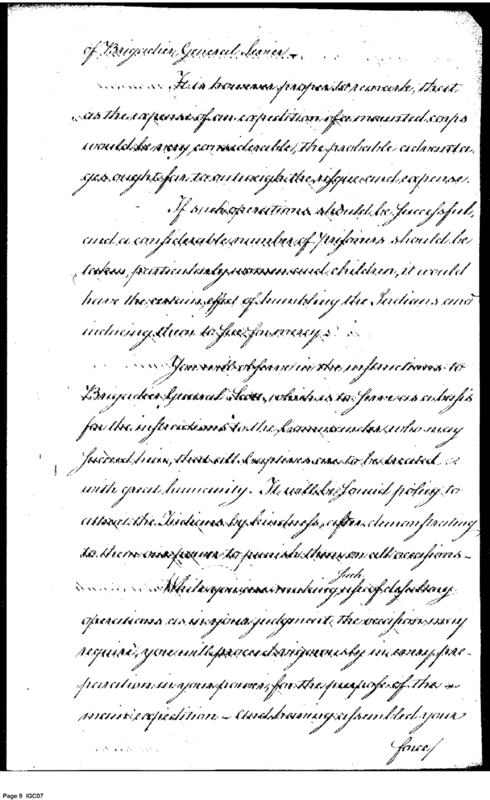 of Brigadier General Sevier —
It is however proper to remark, that
as the expense of an expedition of a mounted corps
would be very considerable, the probable advanta
ges ought far to outweigh the risque and expense.
If such operations should be successful,
and a considerable number of Prisoners should be
taken, particularly women and children, it would
have the certain effect of humbling the Indians and
inducing them to sue for mercy.
You will observe in the instructions to
Brigadier General Scott, which is to serve as a basis
for the instructions to the Commander, who may
succeed him, that all captives are to be treated
with great humanity. It will be sound policy to
attract the Indians by kindness, after demonstrating
to them our power to punish them on all occasions —
such
While you are making use of desultory
operations as in your judgment the occasion may
require, you will proceed vigorously in every pre
paration in your power, for the purpose of the
main expedition — and having assembled your
force/
Page 9 IGC07